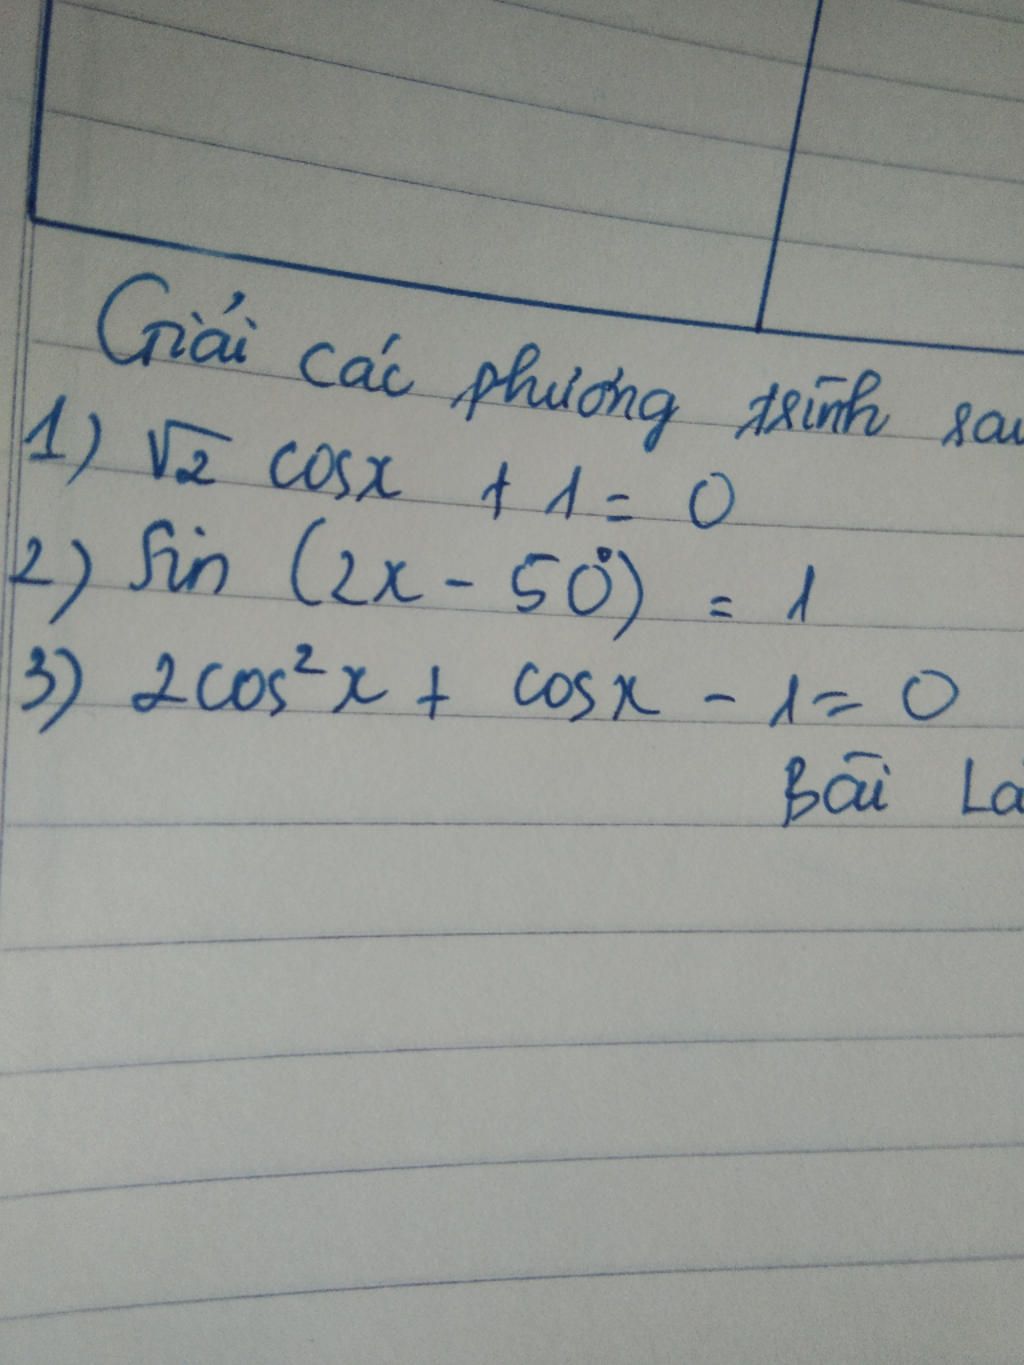 Giải các phương trình sau
1) √2 cosx + 1 = 0
2) Sin (2x - 50°) = 1
3) 2cos²x + cosx - 1 = 0
Bài